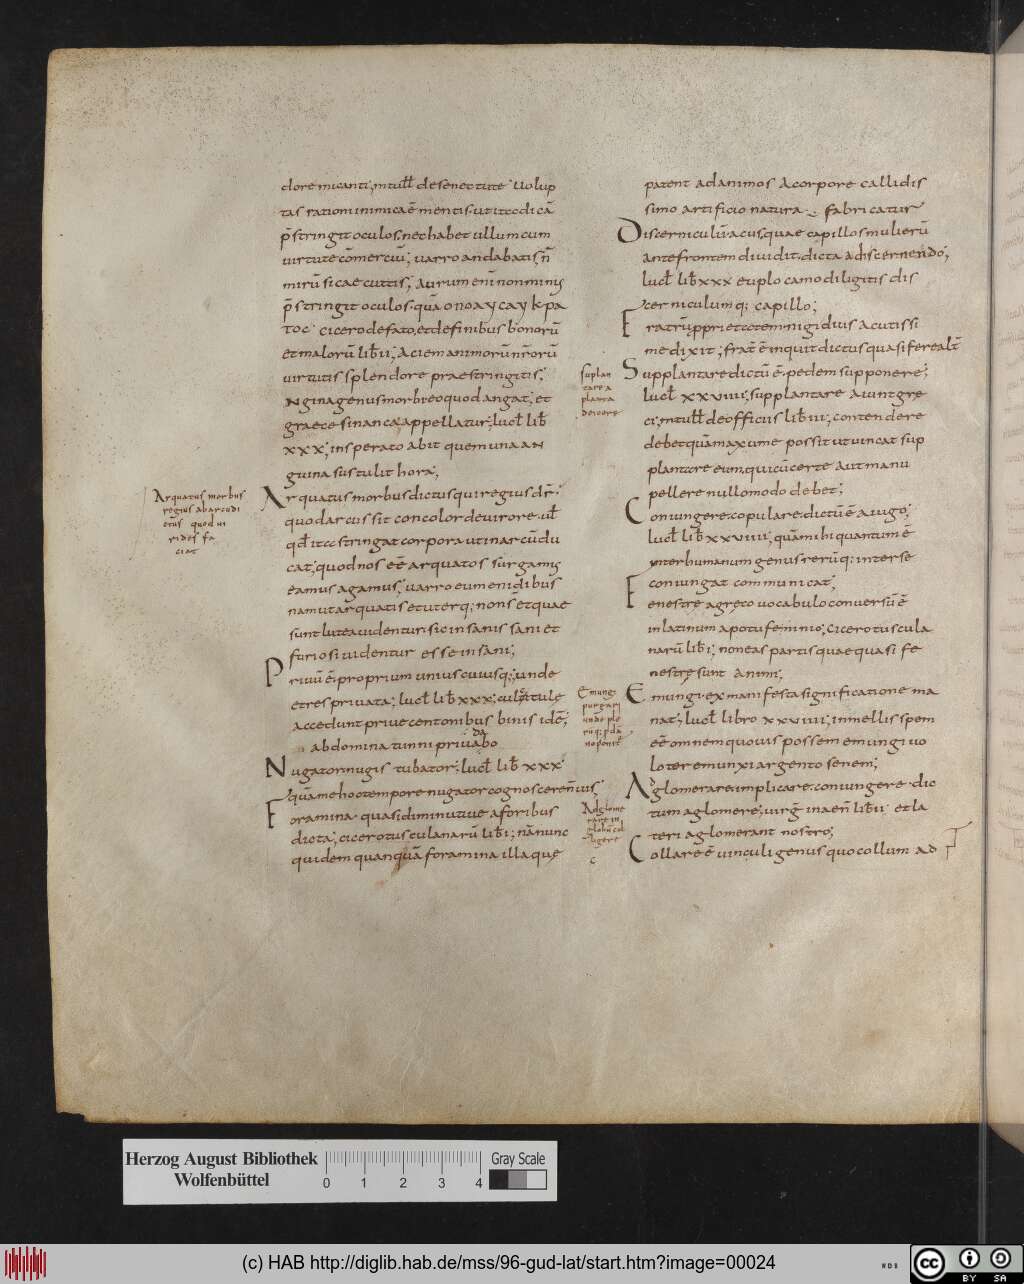 dore micanti; m̄ tull̄ de senectute uolup
tas rationi inimica ē mentis. ut ita dicā
p̄stringit oculos. nec habet ullum cum
uirtute cōmerciū; uarro andabatis; n̄
mirū si caecutis; aurum enī non minus
p̄stringit oculos. quā
cicero de fato, et de finibus bonorū
et malorū lib̄ ii; aciem animorū nr̄orū
uirtutis splendore praestringitis;
Angina genus morbi eo quod angat; et
graece sinance appellatur; lucl̄ lib̄
xxx; insperato abit quem una an
guina sustulit hora;
Arquatus morbus dictus qui regius dr̄;
quod arcus sit concolor de uirore. ul̄
qd̄ ita stringat corpora ut in arcū du
cat; quod nos eē arquatos surgamus
eamus agamus; uarro eumenidibus
nam ut arquatis et uterq; non sē et quae
sunt lutea uidentur. sic insanis sani et
furiosi uidentur esse insani;
Priuū ē proprium unius cuiusq; unde
et res priuata; lucl̄ lib̄ xxx; culcitule
accedunt priue centonibus binis idē;
da
abdomina tunni priua bo
Nugator nugis tubator; lucl̄ lib̄ xxx
quā me hoc tempore nugator cognoscere n̄ uis;
Foramina quasi diminutiue a foribus
dicta; cicero tusculanarū lib̄ i; nā nunc
quidem quanquā foramina illa que
Arquatus morbus
regius ab arcu di
ctus quod ui
rides fa
ciat
patent ad animos a corpore callidis
simo artificio natura fabricatur
Discerniculū acus. quae capillos mulierū
ante frontem diuidit. dicta a discernendo;
lucl̄ lib̄ xxx euplocamo diligitis dis
cerniculumq; capillo;
Fratrū pprietatem nigidius acutissi
me dixit; frat̄ ē inquit dictus quasi fere alt̄
Supplantare dictū ē. pedem supponere;
lucl̄ xxviiii; supplantare aiunt gre
ci; m̄ tull̄ de officiis lib̄ iii; contendere
debet quā maxume possit ut uincat sup
plantare eum, quicū certet aut manu
pellere nullo modo debet;
Coniungere. copulare. dictū ē a iugo;
lucl̄ lib̄ xxviiii; quā mihi quantum ē
ynter humanum genus rerūq; inter se
coniungat communicat;
Fenestre a greco uocabulo conuersū ē
in latinum apo tu feninio; cicero tuscula
narū lib̄ i; non eas partis quae quasi fe
nestre sunt animi;
Emungi. ex manifesta significatione ma
nat; lucl̄ libro xxviiii; in me illis spem
eē omnem quouis posse me mungi uo
lo ter emunxi argento senem;
Aglomerare implicare. coniungere. dic
tum a glomere; uirḡ in aen̄ lib̄ ii et la
teri aglomerant nostro;
Collare ē uinculi genus quo collum ad
suplan
tare a
planta
deriuare
Emungi
purgari
unde ple
rūq; pdā
no ponit̄
Adglome
rare in
globū col
ligere
c
Herzog August Bibliothek
Wolfenbüttel
0 1 2 3 4
Gray Scale
(c) HAB http://diglib.hab.de/mss/96-gud-lat/start.htm?image=00024
WDB
cc
BY SA